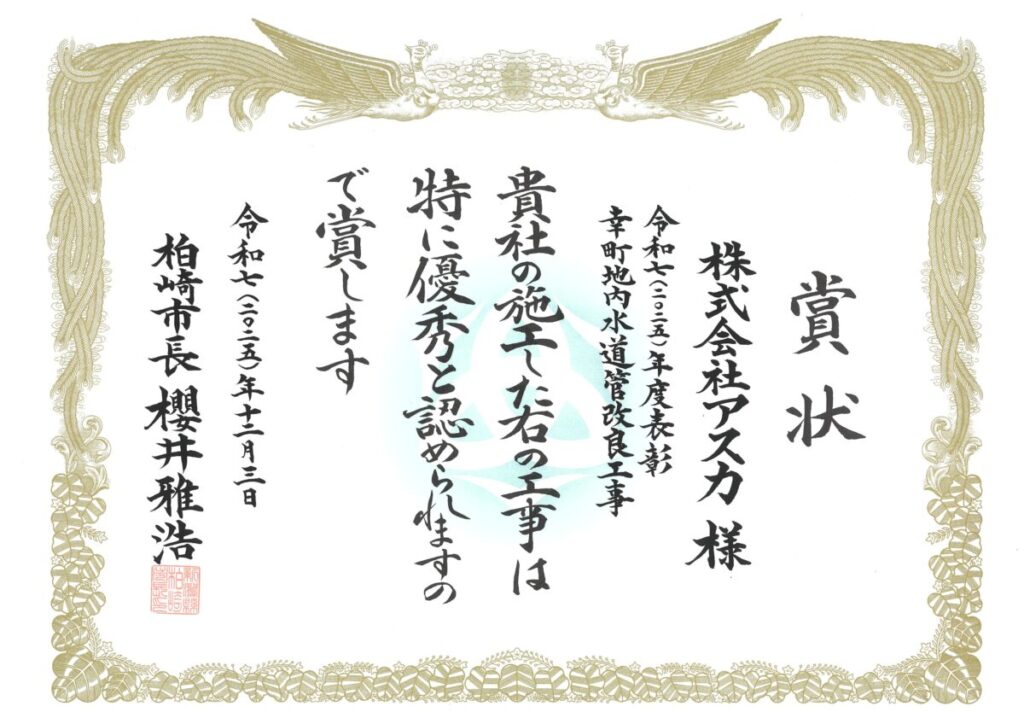 賞状
株式会社アスカ 様
令和七(二〇二五)年度表彰
幸町地内水道管改良工事
貴社の施工した右の工事は
特に優秀と認められますの
で賞します
令和七(二〇二五)年十二月三日
柏崎市長 櫻井雅浩